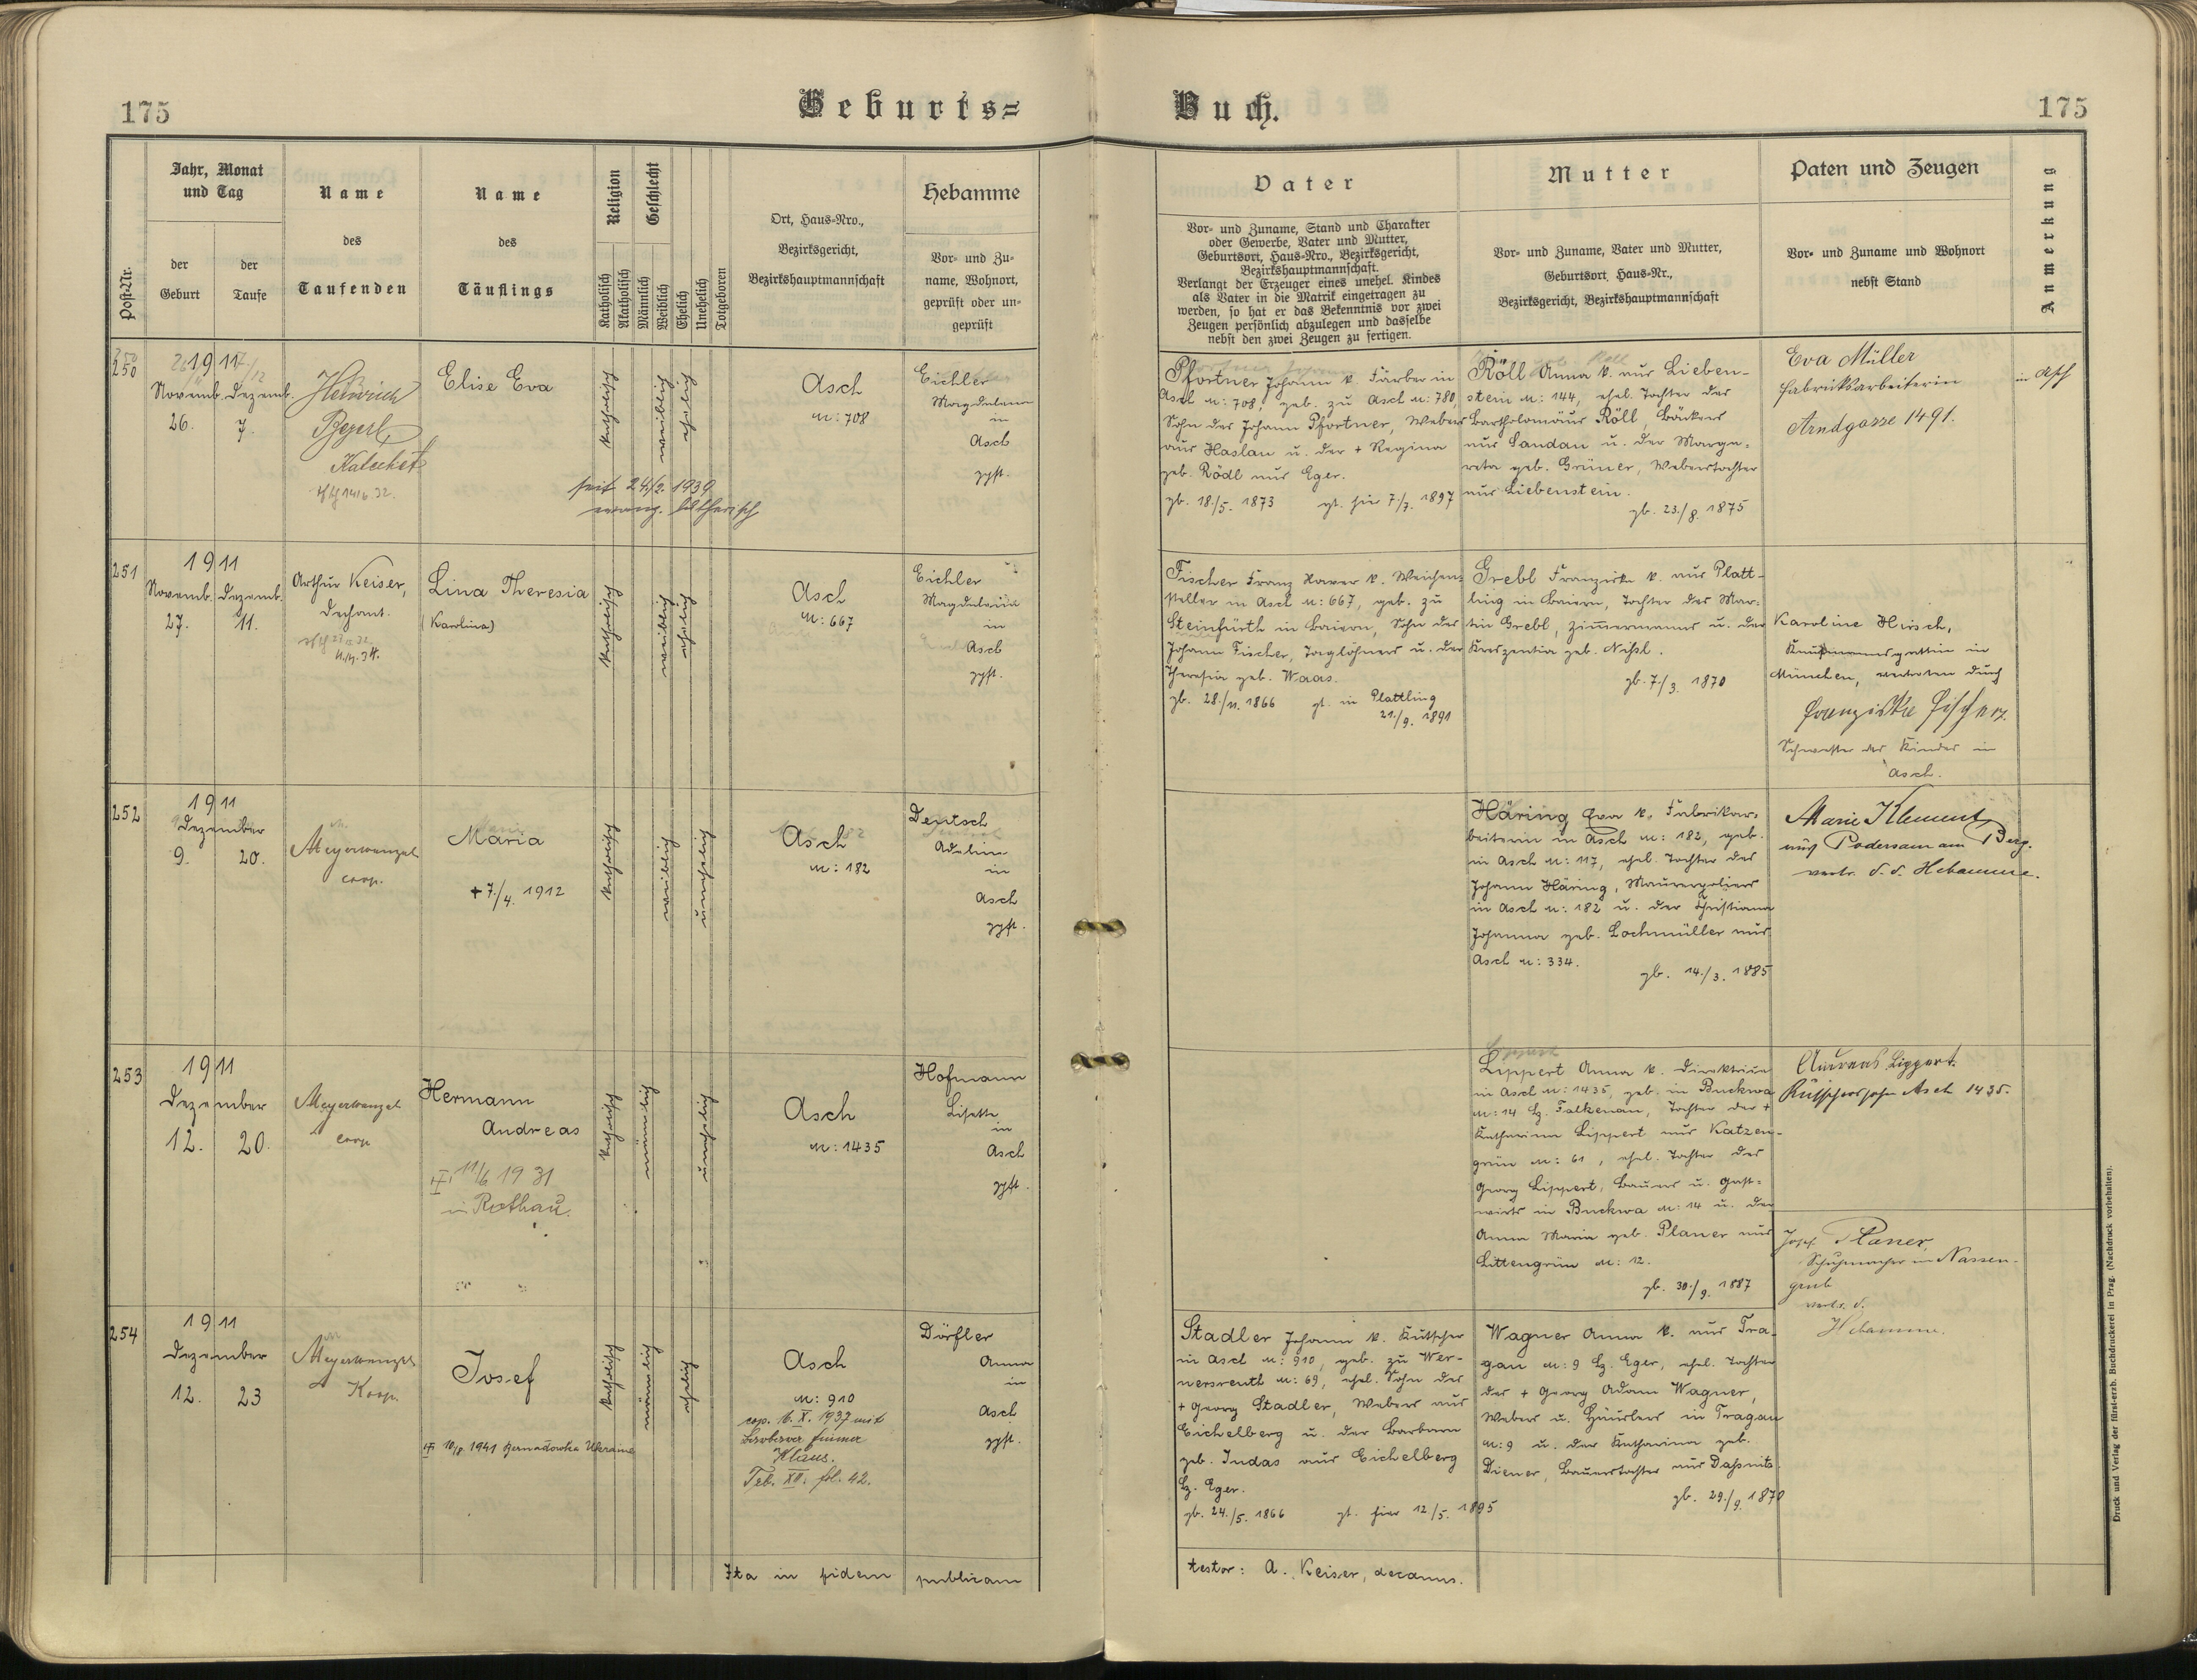 175
Geburts=
Buch.
175
Post-Nr.
Jahr, Monat
und Tag
der
Geburt
der
Taufe
Name
des
Taufenden
Name
des
Täuflings
Religion
Katholisch
Akatholisch
Geschlecht
Männlich
Weiblich
Ehelich
Unehelich
Totgeboren
Ort, Haus-Nro.,
Bezirksgericht,
Bezirkshauptmannschaft
Hebamme
Vor- und Zu-
name, Wohnort,
geprüft oder un-
geprüft
Vater
Vor- und Zuname, Stand und Charakter
oder Gewerbe, Vater und Mutter,
Geburtsort, Haus-Nro., Bezirksgericht,
Bezirkshauptmannschaft.
Verlangt der Erzeuger eines unehel. Kindes
als Vater in die Matrik eingetragen zu
werden, so hat er das Bekenntnis vor zwei
Zeugen persönlich abzulegen und dasselbe
nebst den zwei Zeugen zu fertigen.
Mutter
Vor- und Zuname, Vater und Mutter,
Geburtsort, Haus-Nr.,
Bezirksgericht, Bezirkshauptmannschaft
Paten und Zeugen
Vor- und Zuname und Wohnort
nebst Stand
Anmerkung
250
1911
Novemb. Dezemb.
26. 7.
Heinrich
Beyerl
Katechet
Elise Eva
katholisch
weiblich
ehelich
seit 24./2. 1939
evang. lutherisch
Asch
N: 708
Eichler
Magdalena
in
Asch
gpft.
Pfortner Johann k. Färber in
Asch N: 708, geb. zu Asch N: 780,
Sohn des Johann Pfortner, Webers
aus Haslau u. der + Regina
geb. Rödl aus Eger.
gb. 18./5. 1873 gt. hier 7./7. 1897
Röll Anna k. aus Lieben-
stein N: 144, ehel. Tochter des
Bartholomäus Röll, Bäckers
aus Sandau u. der Marga-
reta geb. Grüner, Weberstochter
aus Liebenstein.
gb. 23./8. 1875
Eva Müller
Fabriksarbeiterin
Arndgasse 1491.
in Asch
251
1911
Novemb. Dezemb.
27. 11.
Arthur Keiser,
Dechant.
Lina Theresia
(Karolina)
katholisch
weiblich
ehelich
Asch
N: 667
Eichler
Magdalena
in
Asch
gpft.
Fischer Franz Xaver k. Weichen-
steller in Asch N: 667, geb. zu
Steinfürth in Baiern, Sohn des
Johann Fischer, Taglöhners u. der
Theresia geb. Waas.
gb. 28./11. 1866 gt. in Plattling
21./9. 1891
Grebl Franziska k. aus Platt-
ling in Baiern, Tochter des Mar-
tin Grebl, Zimmermanns u. der
Kreszentia geb. Nißl.
gb. 7./3. 1870
Karoline Hirsch,
Kaufmannsgattin in
München, vertreten durch
Franziska Fischer
Schwester des Kindes in
Asch.
252
1911
Dezember
9. 20.
Meyer Wenzel
coop.
Maria
+ 7./4. 1912
katholisch
weiblich
unehelich
Asch
N: 182
Deutsch
Adelina
in
Asch
gpft.
Häring Eva k. Fabrikar-
beiterin in Asch N: 182, geb.
in Asch N: 117, ehel. Tochter des
Johann Häring, Maurerpoliers
in Asch N: 182 u. der Christiana
Johanna geb. Lochmüller aus
Asch N: 334.
gb. 14./3. 1885
Marie Klement
aus Podersam am Berg.
vertr. d. d. Hebamme.
253
1911
Dezember
12. 20.
Meyer Wenzel
coop.
Hermann
Andreas
11/6 1931
in Rothau.
katholisch
männlich
unehelich
Asch
N: 1435
Hofmann
Lisette
in
Asch
gpft.
Lippert Anna k. Direktrice
in Asch N: 1435, geb. in Buckwa
N: 14 Bz. Falkenau, Tochter der +
Katharina Lippert aus Katzen-
grün N: 61, ehel. Tochter des
Georg Lippert, Bauers u. Gast-
wirts in Buckwa N: 14 u. der
Anna Maria geb. Planer aus
Littengrün N: 12.
gb. 30./9. 1887
Andreas Lippert.
Kutscherssohn Asch 1435.
254
1911
Dezember
12. 23
Meyer Wenzel
Koop.
Josef
10/8. 1941 Ukraine
katholisch
männlich
ehelich
Asch
N: 910
cop. 16. X. 1937 mit
Klaus.
fol. 42.
Dörfler
Anna
in
Asch
gpft.
Stadler Johann k. Kutscher
in Asch N: 910, geb. zu Wer-
nersreuth N: 69, ehel. Sohn des
+ Georg Stadler, Webers aus
Eichelberg u. der Barbara
geb. Judas aus Eichelberg
Bz. Eger.
gb. 24./5. 1866 gt. hier 12./5. 1895
Wagner Anna k. aus Tra-
gau N: 9 Bz. Eger, ehel. Tochter
des + Georg Adam Wagner,
Webers u. Häuslers in Tragau
N: 9 u. der Katharina geb.
Diener, Bauerstochter aus Daßnitz.
gb. 29./9. 1870
Josef Planer,
Schuhmacher in Nassen-
grub
vertr. d.
Hebamme.
Ita in fidem publicam
testor: A. Keiser, decanus.
Druck und Verlag der fürsterzb. Buchdruckerei in Prag. (Nachdruck vorbehalten).